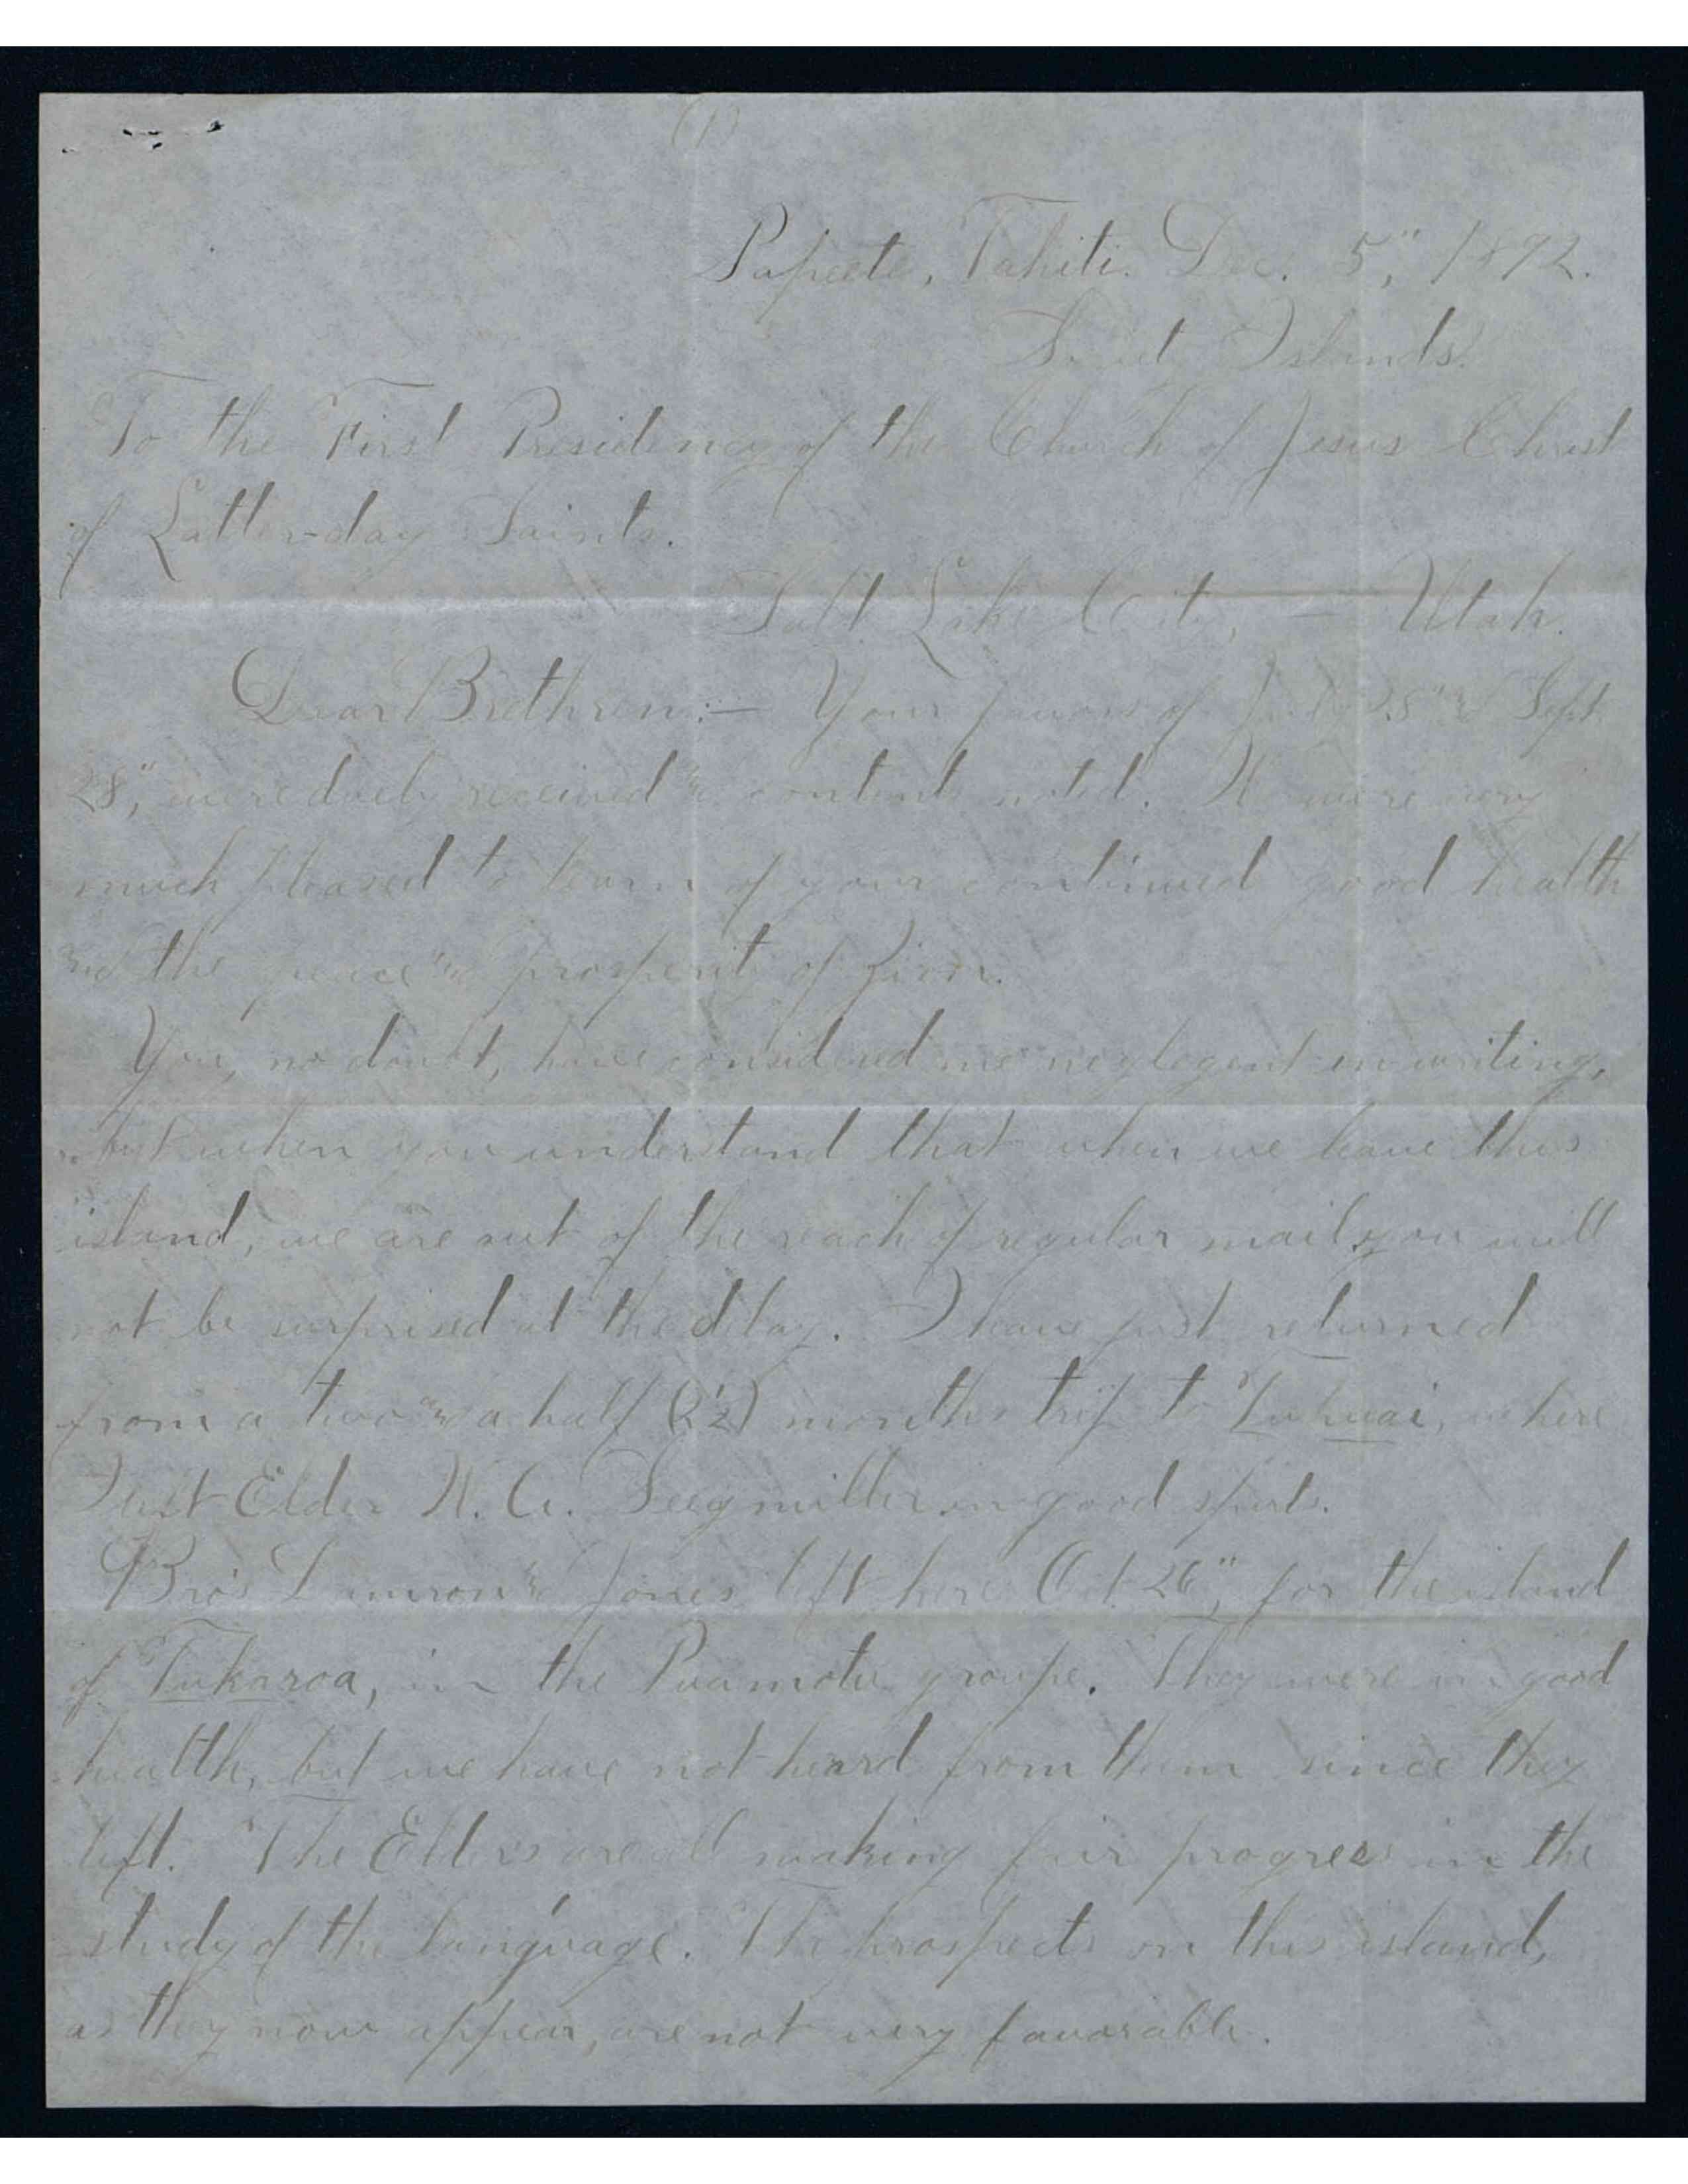 (1)
Papeete, Tahiti. Dec. 5", 1892.
Islands.
To the First Presidency of the Church of Jesus Christ
of Latter-day Saints.
Salt Lake City, — Utah.
Dear Brethren:— Your favors of July 25" and Sept.
28", were duly received and contents noted. We were very
much pleased to learn of your continued good health
and the peace and prosperity of Zion.
You, no doubt, have considered me neglegent in writing,
but when you understand that when we leave this
island, we are out of the reach of regular mail, you will
not be surprised at the delay. I have just returned
from a two and a half (2½) months trip to Tubuai, where
I left Elder W. A. Seegmiller in good spirits.
Bro's Damron and Jones left here Oct. 26", for the island
of Takaroa, in the Puamotu groupe. They were in good
health, but we have not heard from them since they
left. The Elders are all making fair progress in the
study of the language. The prospects on this island,
as they now appear, are not very favorable.